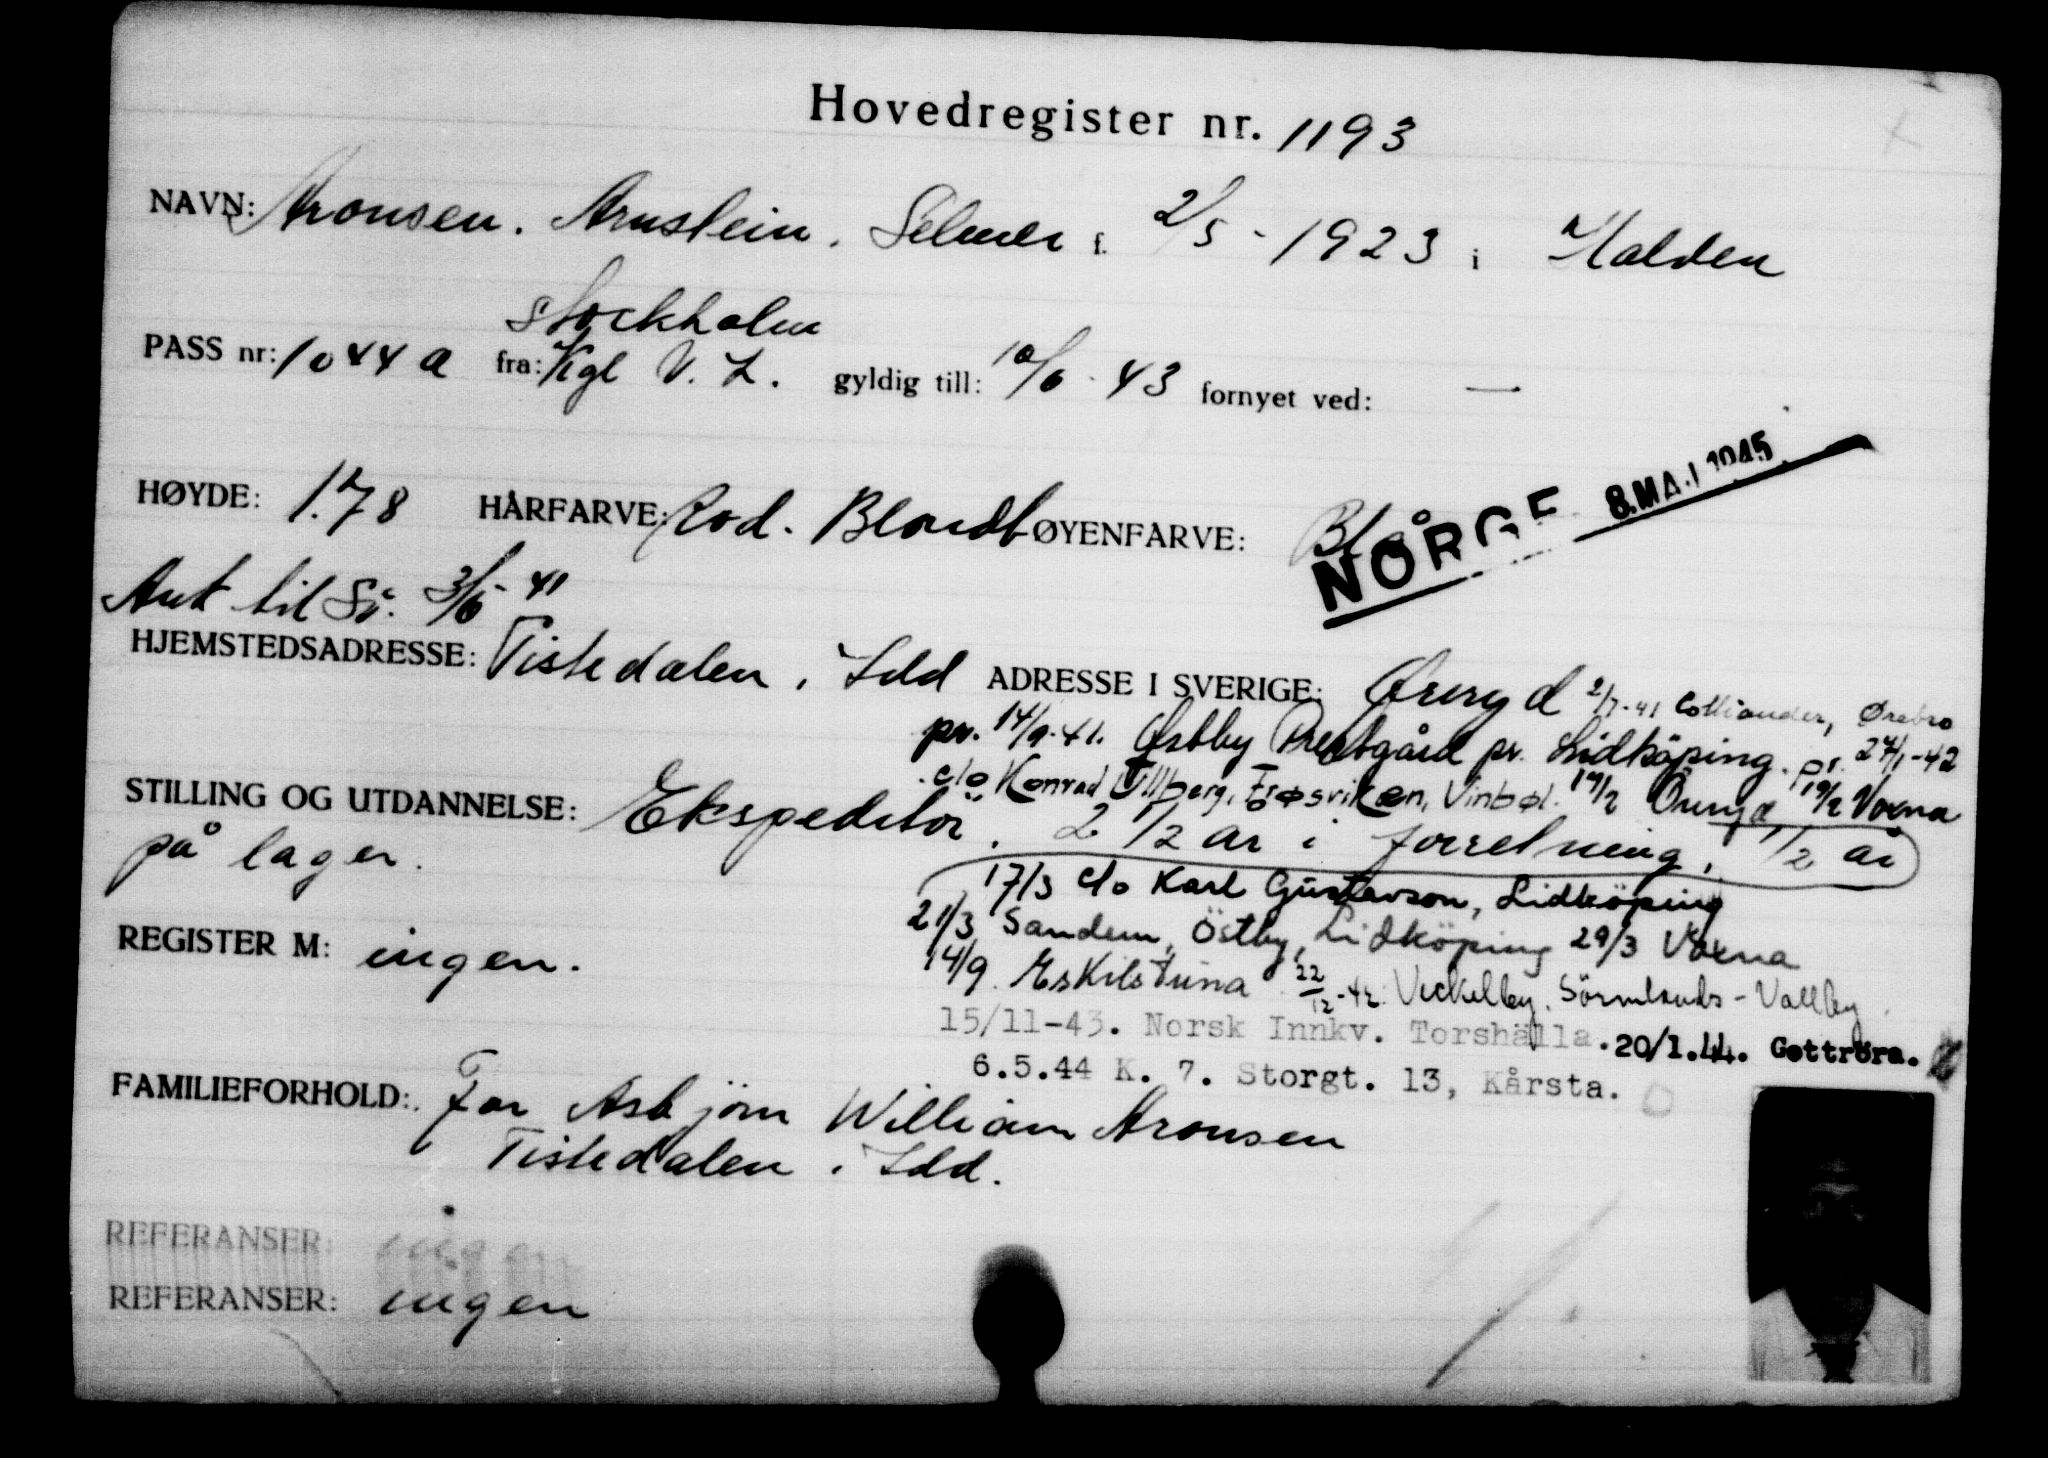 Hovedregister nr. 1193
NAVN: Aronsen. Arnstein. Selmer f. 2/5 - 1923 i Halden
Stockholm
PASS nr: 1044 a fra: Kgl V. L. gyldig till: 10/6 - 43 fornyet ved: —
HØYDE: 1.78 HÅRFARVE: Rød. Blondt ØYENFARVE: Blå
NORGE 8. MAJ 1945
Ank til Sv. 3/6 - 41
HJEMSTEDSADRESSE: Tistedalen, Idd ADRESSE I SVERIGE: Øreryd 2/7-41 Colliander, Ørebro
pr. 14/9-41. Østby Prestgård pr. Lidköping. pr. 24/1-42
c/o Konrad Ullberg, Frøsviken, Vinbøl. 14/2 Öreryd, 19/2 Voxna
STILLING OG UTDANNELSE: Ekspeditør, 2 1/2 år i forretning, 1/2 år
på lager.
17/3 c/o Karl Gustavson, Lidköping
21/3 Sandem, Östby, Lidköping 29/3 Voxna
REGISTER M: ingen.
14/9. Eskilstuna 22/12-42. Veckelby, Sörmlands-Vallby
15/11-43. Norsk Innkv. Torshälla. 20/1.44. Gottröra.
6.5.44 K. 7. Storgt. 13, Kårsta.
FAMILIEFORHOLD: Far Asbjörn William Aronsen
Tistedalen, Idd.
REFERANSER: ingen
REFERANSER: ingen